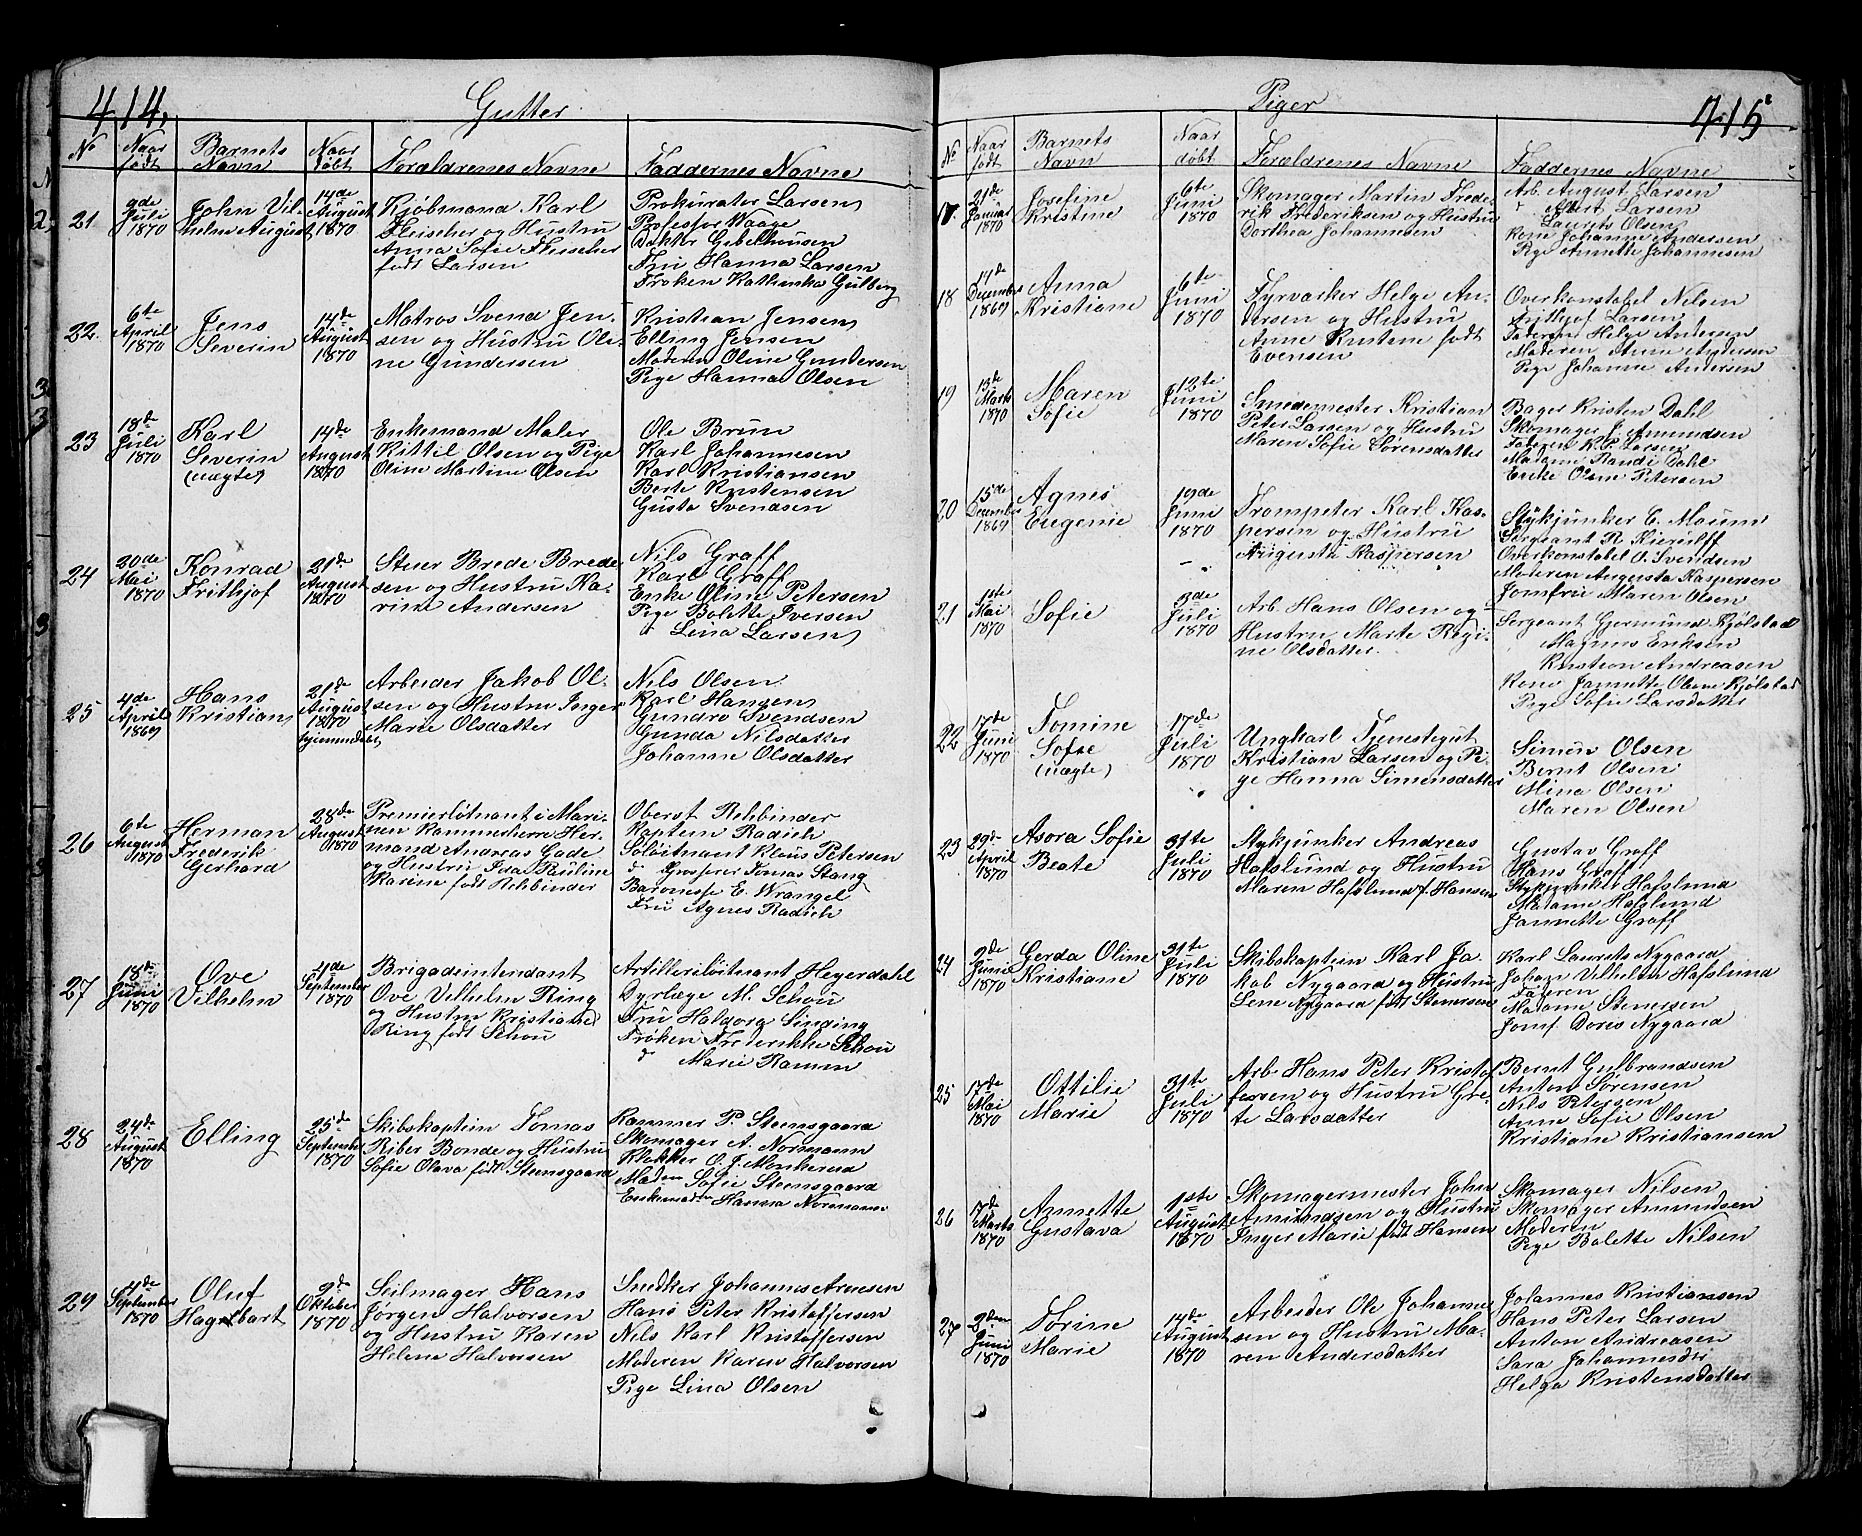 414,
Gutter
No
Naar født
Barnets Navn
Naar døbt
Forældrenes Navne
Faddernes Navne
21
9de Juli 1870
John Vilhelm August
14de August 1870
Kjøbmand Karl
Fleischer og Hustru
Anna Sofie Fleischer
født Larsen
Prokurator Larsen
Profesfor Waage
Doktor Gebelhousen
Fru Hanna Larsen
Frøken Kathinka Gulberg
22
6te April 1870
Jens Severin
14de August 1870
Matros Svend Jen-
sen og Hustru Ole-
ne Gundersen
Kristian Jensen
Elling Jensen
Moderen Oline Gundersen
Pige Hanna Olsen
23
18de Juli 1870
Karl Severin (uægte)
14de August 1870
Enkemand Maler
Kittil Olsen og Pige
Oline Martine Olsen
Ole Brun
Karl Johannesen
Karl Kristiansen
Berte Kristensen
Gusta Svendsen
24
20de Mai 1870
Konrad Frithjof
21de August 1870
Stuer Brede Brede
sen og Hustru Ka-
rine Andersen
Nils Graff
Karl Graff
Enke Oline Petersen
Pige Bolette Iversen
" Lina Larsen
25
4de April 1869
Hans Kristian
21de August 1870 hjemmedøbt
Arbeider Jakob Ol-
sen og Hustru Inger
Marie Olsdatter
Nils Olsen
Karl Hansen
Gundro Svendsen
Gunda Nilsdatter
Johanne Olsdatter
26
6te August 1870
Herman Frederik Gerhard
28de August 1870
Premierløtnant i Mari-
nen Kammerherre Her-
mand Andreas Gade
og Hustru Ida Pauline
Karine født Rehbinder
Oberst Rehbinder
Kaptein Radich
Søløitnant Klaus Petersen
d. Grosserer Tomas Stang
Baronesse E. Wrangel
Fru Agnes Radich
27
18de Juni 1870
Ove Vilhelm
4de September 1870
Brigadeintendant
Ove Vilhelm Ring
og Hustru Kristiane
Ring født Schou
Artilleriløitnant Heyerdahl
Dyrlæge M. Schou
Fru Haldora Sinding
Frøken Frederikke Schou
d Marie Ramm
28
24de August 1870
Elling
25de September 1870
Skibskaptein Tomas
Riber Bonde og Hustru
Sofie Olava født Steensgaard
Kammer P. Steensgaard
Skomager A. Normann
Klokker O. J. Monkerud
Madm Sofie Steensgaard
Enkemadm Hanna Normann
29
4de September 1870
Oluf Hagelbart
9de Oktober 1870
Seilmager Hans
Jørgen Halvorsen
og Hustru Karen
Helene Halvorsen
Snedker Johannes Arnesen
Hans Peter Kristoffersen
Nils Karl Kristoffersen
Moderen Karen Halvorsen
Pige Lina Olsen
Piger
415
No
Naar født
Barnets Navn
Naar døbt
Forældrenes Navne
Faddernes Navne
17.
21de Januar 1870
Josefine Kristine
6te Juni 1870
Skomager Martin Frede-
rik Frederiksen og Hustru
Dorthea Johannesen
Arb. August Larsen
" Albert Larsen
Laurits Olsen
Kone Johanne Andersen
Pige Annette Johannesen
18
14de December 1869
Anna Kristiane
6te Juni 1870
Fyrvarker Helge An-
dersen og Hustru
Anne Kristine født
Evensen
Overkonstabel Nilsen
Frithjof Larsen
Faderen Helge Andersen
Moderen Anne Andersen
Pige Johanne Andersen
19
13de Marts 1870
Maren Sofie
12te Juni 1870
Smedemester Kristian
Peter Larsen og Hustru
Maren Sofie Sørensdatter
Bager Kristen Dahl
Skomager J. Amundsen
Faderen K. P. Larsen
Madame Randi Dahl
Enke Olene Petersen
20
15de December 1869
Agnes Eugenie
19de Juni 1870
Trompeter Karl Kas-
persen og Hustru
Augusta Kaspersen
Stykjunker C. Moum
Sergeant R. Kierulff
Overkonstabel O. Svendsen
Moderen Augusta Kaspersen
Jomfru Maren Olsen
21
1ste Mai 1870
Sofie
3de Juli 1870
Arb. Hans Olsen og
Hustru Marte Regi-
ne Olsdatter.
Sergeant Gjermund Kjølstad
Magnus Eriksen
Kristian Andreasen
Kone Jannette Olene Kjølstad
Pige Sofie Larsdatter
22
17de Juni 1870
Tomine Sofie (uægte)
17de Juli 1870
Ungkarl Tjenestegut
Kristian Larsen og Pi-
ge Hanna Simensdatter
Simen Olsen
Bernt Olsen
Mina Olsen
Maren Olsen
23
29de April 1870
Asora Sofie Beate
31te Juli 1870
Stykjunker Andreas
Hafslund og Hustru
Maren Hafslund f. Hansen
Gustav Graff
Hans Graff
Stykjunker Hafslund
Madame Hafslund
Jannette Graff
24
2de Juni 1870
Gerda Oline Kristiane
31te Juli 1870
Skibskaptein Karl Ja-
kob Nygaard og Hustru
Lene Nygaard født Stenersen
Karl Laurets Nygaard
Johan Vilhelm Hafslund
Faderen
Madame Stenersen
Jomf. Doris Nygaard
25
17de Mai 1870
Ottilie Marie
31te Juli 1870
Arb. Hans Peter Kristof
fersen og Hustru Gre-
te Larsdatter
Bernt Gulbrandsen
Anton Sørensen
Nils Petersen
Anne Sofie Olsen
Kristiane Kristiansen
26
17de Marts 1870
Annette Gustava
1ste August 1870
Skomagermester John
Amundsen og Hustru
Inger Marie født Hansen
Skomager Nilsen
Skomager Amundsen
Moderen
Pige Bolette Nilsen
27
2den Juni 1870
Torine Marie
14de August 1870
Arbeider Ole Johannes
sen og Hustru Ma-
ren Andersdatter
Johannes Kristiansen
Hans Peter Larsen
Anton Andreasen
Sara Johannesdtr
Helga Kristensdatter